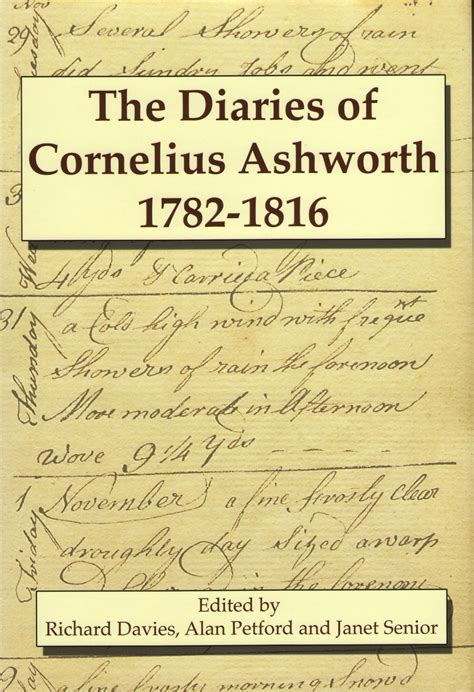 29 Several Showers of rain
Tuesday
did Sundry Jobs and went
The Diaries of
Cornelius Ashworth
1782-1816
4 yds & Carried a Piece
31 a Cold high wind with frequent
Thursday
Showers of rain the forenoon
More moderate in Afternoon
Wove 9 1/4 yds
1 November a fine frosty clear
Friday
droughty day Sized a warp
in the forenoon
Edited by
Richard Davies, Alan Petford and Janet Senior
morning Snow